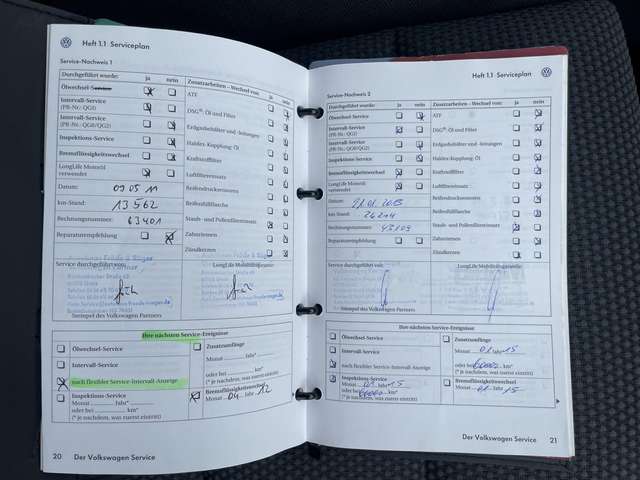 Heft 1.1 Serviceplan
Service-Nachweis 1
Durchgeführt wurde: ja nein
Ölwechsel-Service
Intervall-Service
(PR-Nr.: QG1)
Intervall-Service
(PR-Nr.: QG0/QG2)
Inspektions-Service
Bremsflüssigkeitswechsel
LongLife Motoröl
verwendet
Datum: 09 05 11
km-Stand: 13 562
Rechnungsnummer: 63401
Reparaturempfehlung
Zusatzarbeiten – Wechsel von: ja nein
ATF
DSG®: Öl und Filter
Erdgasbehälter und -leitungen
Haldex-Kupplung: Öl
Kraftstofffilter
Luftfiltereinsatz
Reifendruckensoren
Reifenfüllflasche
Staub- und Pollenfiltereinsatz
Zahnriemen
Zündkerzen
Service durchgeführt von:
LongLife Mobilitätsgarantie:
Stempel des Volkswagen Partners
Ihre nächsten Service-Ereignisse
Ölwechsel-Service
Intervall-Service
nach flexibler Service-Intervall-Anzeige
Inspektions-Service
Monat ........ Jahr* ........
oder bei ................ km*
(* je nachdem, was zuerst eintritt)
Zusatzumfänge
Monat ........ Jahr* ........
oder bei ................ km*
(* je nachdem, was zuerst eintritt)
Bremsflüssigkeitswechsel
Monat 04 Jahr 12
20 Der Volkswagen Service
Heft 1.1 Serviceplan
Service-Nachweis 2
Durchgeführt wurde: ja nein
Ölwechsel-Service
Intervall-Service
(PR-Nr.: QG1)
Intervall-Service
(PR-Nr.: QG0/QG2)
Inspektions-Service
Bremsflüssigkeitswechsel
LongLife Motoröl
verwendet
Datum:
km-Stand:
Rechnungsnummer:
Reparaturempfehlung
Zusatzarbeiten – Wechsel von: ja nein
ATF
DSG®: Öl und Filter
Erdgasbehälter und -leitungen
Haldex-Kupplung: Öl
Kraftstofffilter
Luftfiltereinsatz
Reifendruckensoren
Reifenfüllflasche
Staub- und Pollenfiltereinsatz
Zahnriemen
Zündkerzen
Service durchgeführt von:
LongLife Mobilitätsgarantie:
Stempel des Volkswagen Partners
Ihre nächsten Service-Ereignisse
Ölwechsel-Service
Intervall-Service
nach flexibler Service-Intervall-Anzeige
Inspektions-Service
Monat 01 Jahr* 15
oder bei 60000 km*
(* je nachdem, was zuerst eintritt)
Zusatzumfänge
Monat 01 Jahr* 15
oder bei 60000 km*
(* je nachdem, was zuerst eintritt)
Bremsflüssigkeitswechsel
Monat 01 Jahr 15
Der Volkswagen Service 21